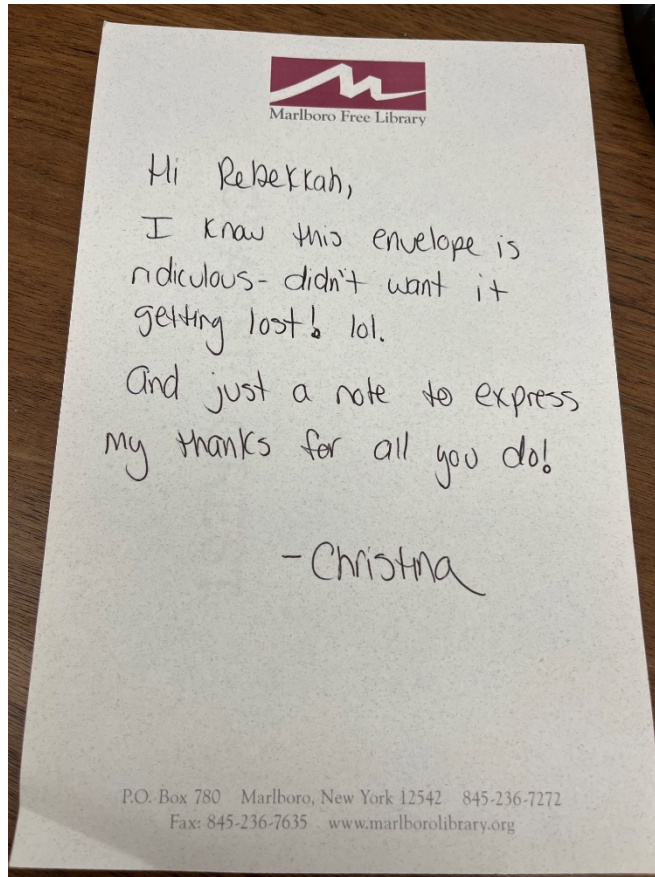 Marlboro Free Library
Hi Rebekkah,
I know this envelope is
ridiculous- didn't want it
getting lost! lol.
And just a note to express
my thanks for all you do!
- Christina
P.O. Box 780 Marlboro, New York 12542 845-236-7272
Fax: 845-236-7635 www.marlborolibrary.org